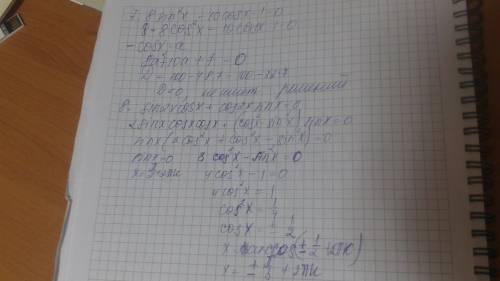 7. 8sin²x - 10cosx - 1 = 0
8 + 8cos²x - 10cosx - 1 = 0
- cosx = a
8a² - 10a + 7 = 0
D = 100 - 4·8·7 = 100 - 224
D < 0, не имеет решений
8. sin2x cosx + cos2x sinx = 0
2sinx cosx cosx + (cos²x - sin²x) sinx = 0
sinx (2cos²x + cos²x - sin²x) = 0
sinx = 0 3cos²x - sin²x = 0
4cos²x - 1 = 0
4cos²x = 1
cos²x = 1/4
cosx = ± 1/2
x = ± π/3 + 2πk